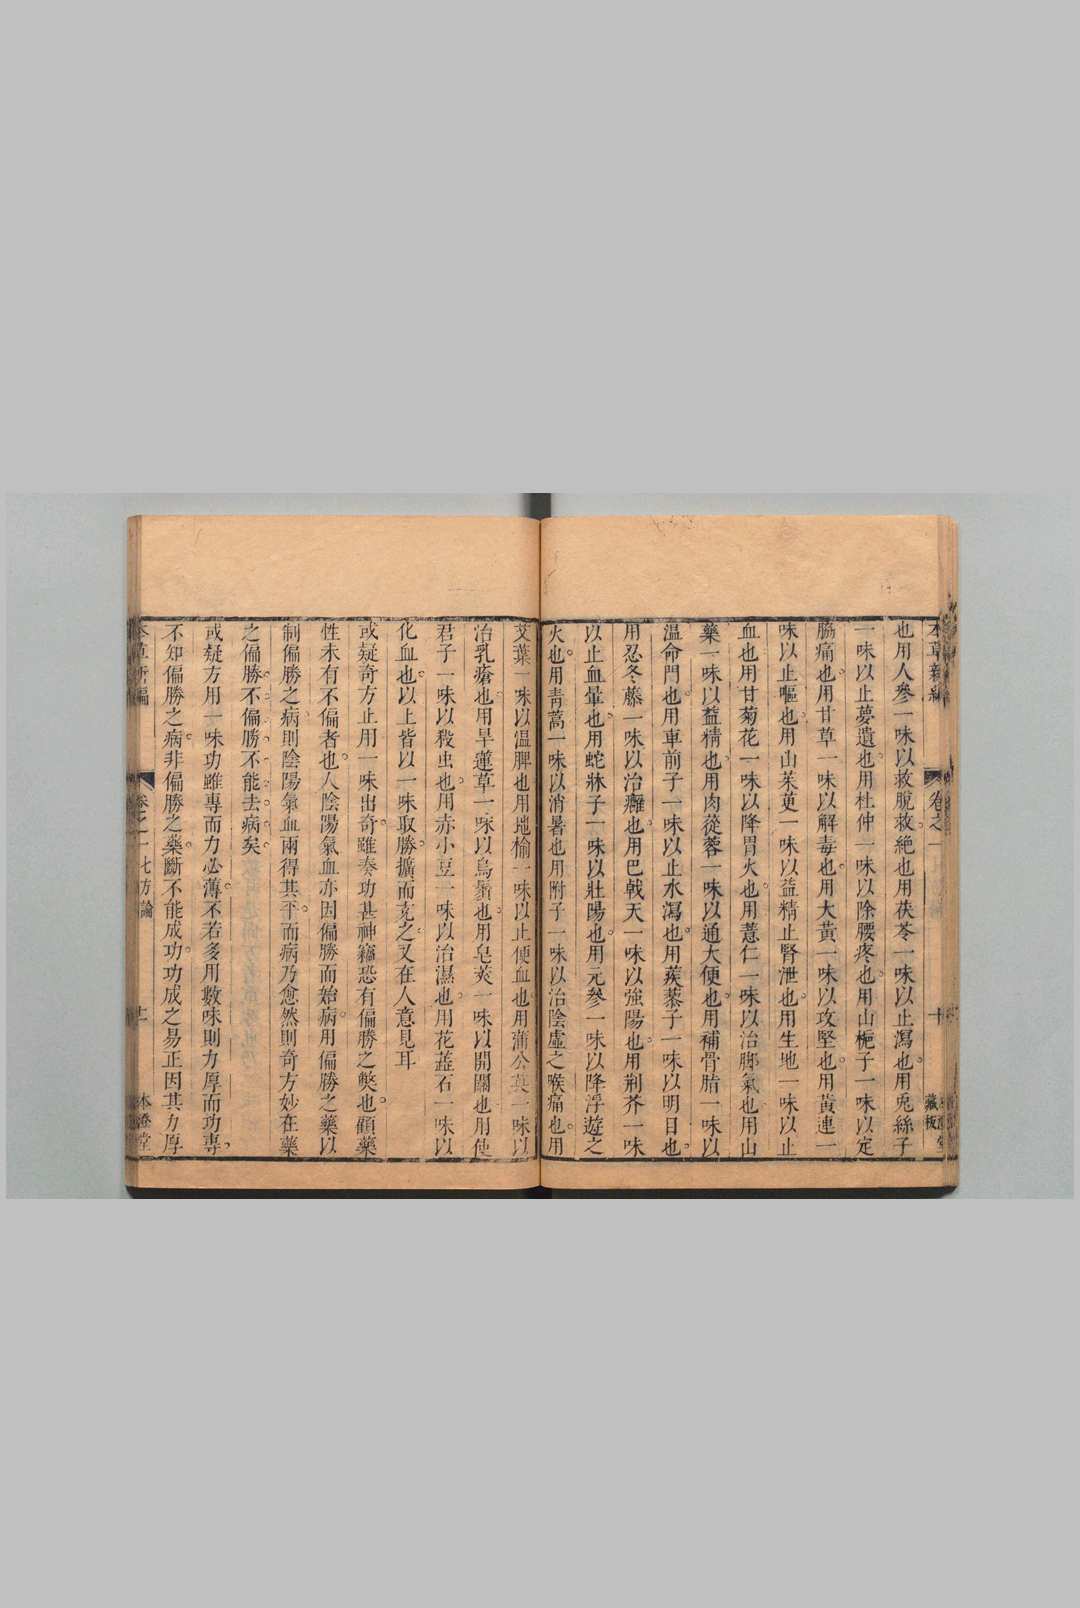 本草新編 卷之一 十 藏板
也用人參一味以救脫救絕也用茯苓一味以止瀉也用兎絲子
一味以止夢遺也用杜仲一味以除腰疼也用山梔子一味以定
脇痛也用甘草一味以解毒也用大黃一味以攻堅也用黃連一
味以止嘔也用山茱萸一味以益精止腎泄也用生地一味以止
血也用甘菊花一味以降胃火也用薏仁一味以治脚氣也用山
藥一味以益精也用肉蓯蓉一味以通大便也用補骨脂一味以
温命門也用車前子一味以止水瀉也用蒺藜子一味以明目也
用忍冬藤一味以治癰也用巴戟天一味以強陽也用荆芥一味
以止血暈也用蛇牀子一味以壯陽也用元參一味以降浮遊之
火也用靑蒿一味以消暑也用附子一味以治陰虛之喉痛也用
艾葉一味以温脾也用地榆一味以止便血也用蒲公英一味以
治乳瘡也用旱蓮草一味以烏鬚也用皂莢一味以開關也用使
君子一味以殺虫也用赤小豆一味以治濕也用花蕊石一味以
化血也以上皆以一味取勝擴而充之又在人意見耳
或疑奇方止用一味出奇雖奏功甚神窃恐有偏勝之獘也顧藥
性未有不偏者也人陰陽氣血亦因偏勝而始病用偏勝之藥以
制偏勝之病則陰陽氣血兩得其平而病乃愈然則奇方妙在藥
之偏勝不偏勝不能去病矣
或疑方用一味功雖專而力必薄不若多用數味則力厚而功專
不知偏勝之病非偏勝之藥斷不能成功功成之易正因其力厚
本草新編 卷之一 七方論 十一 本澄堂